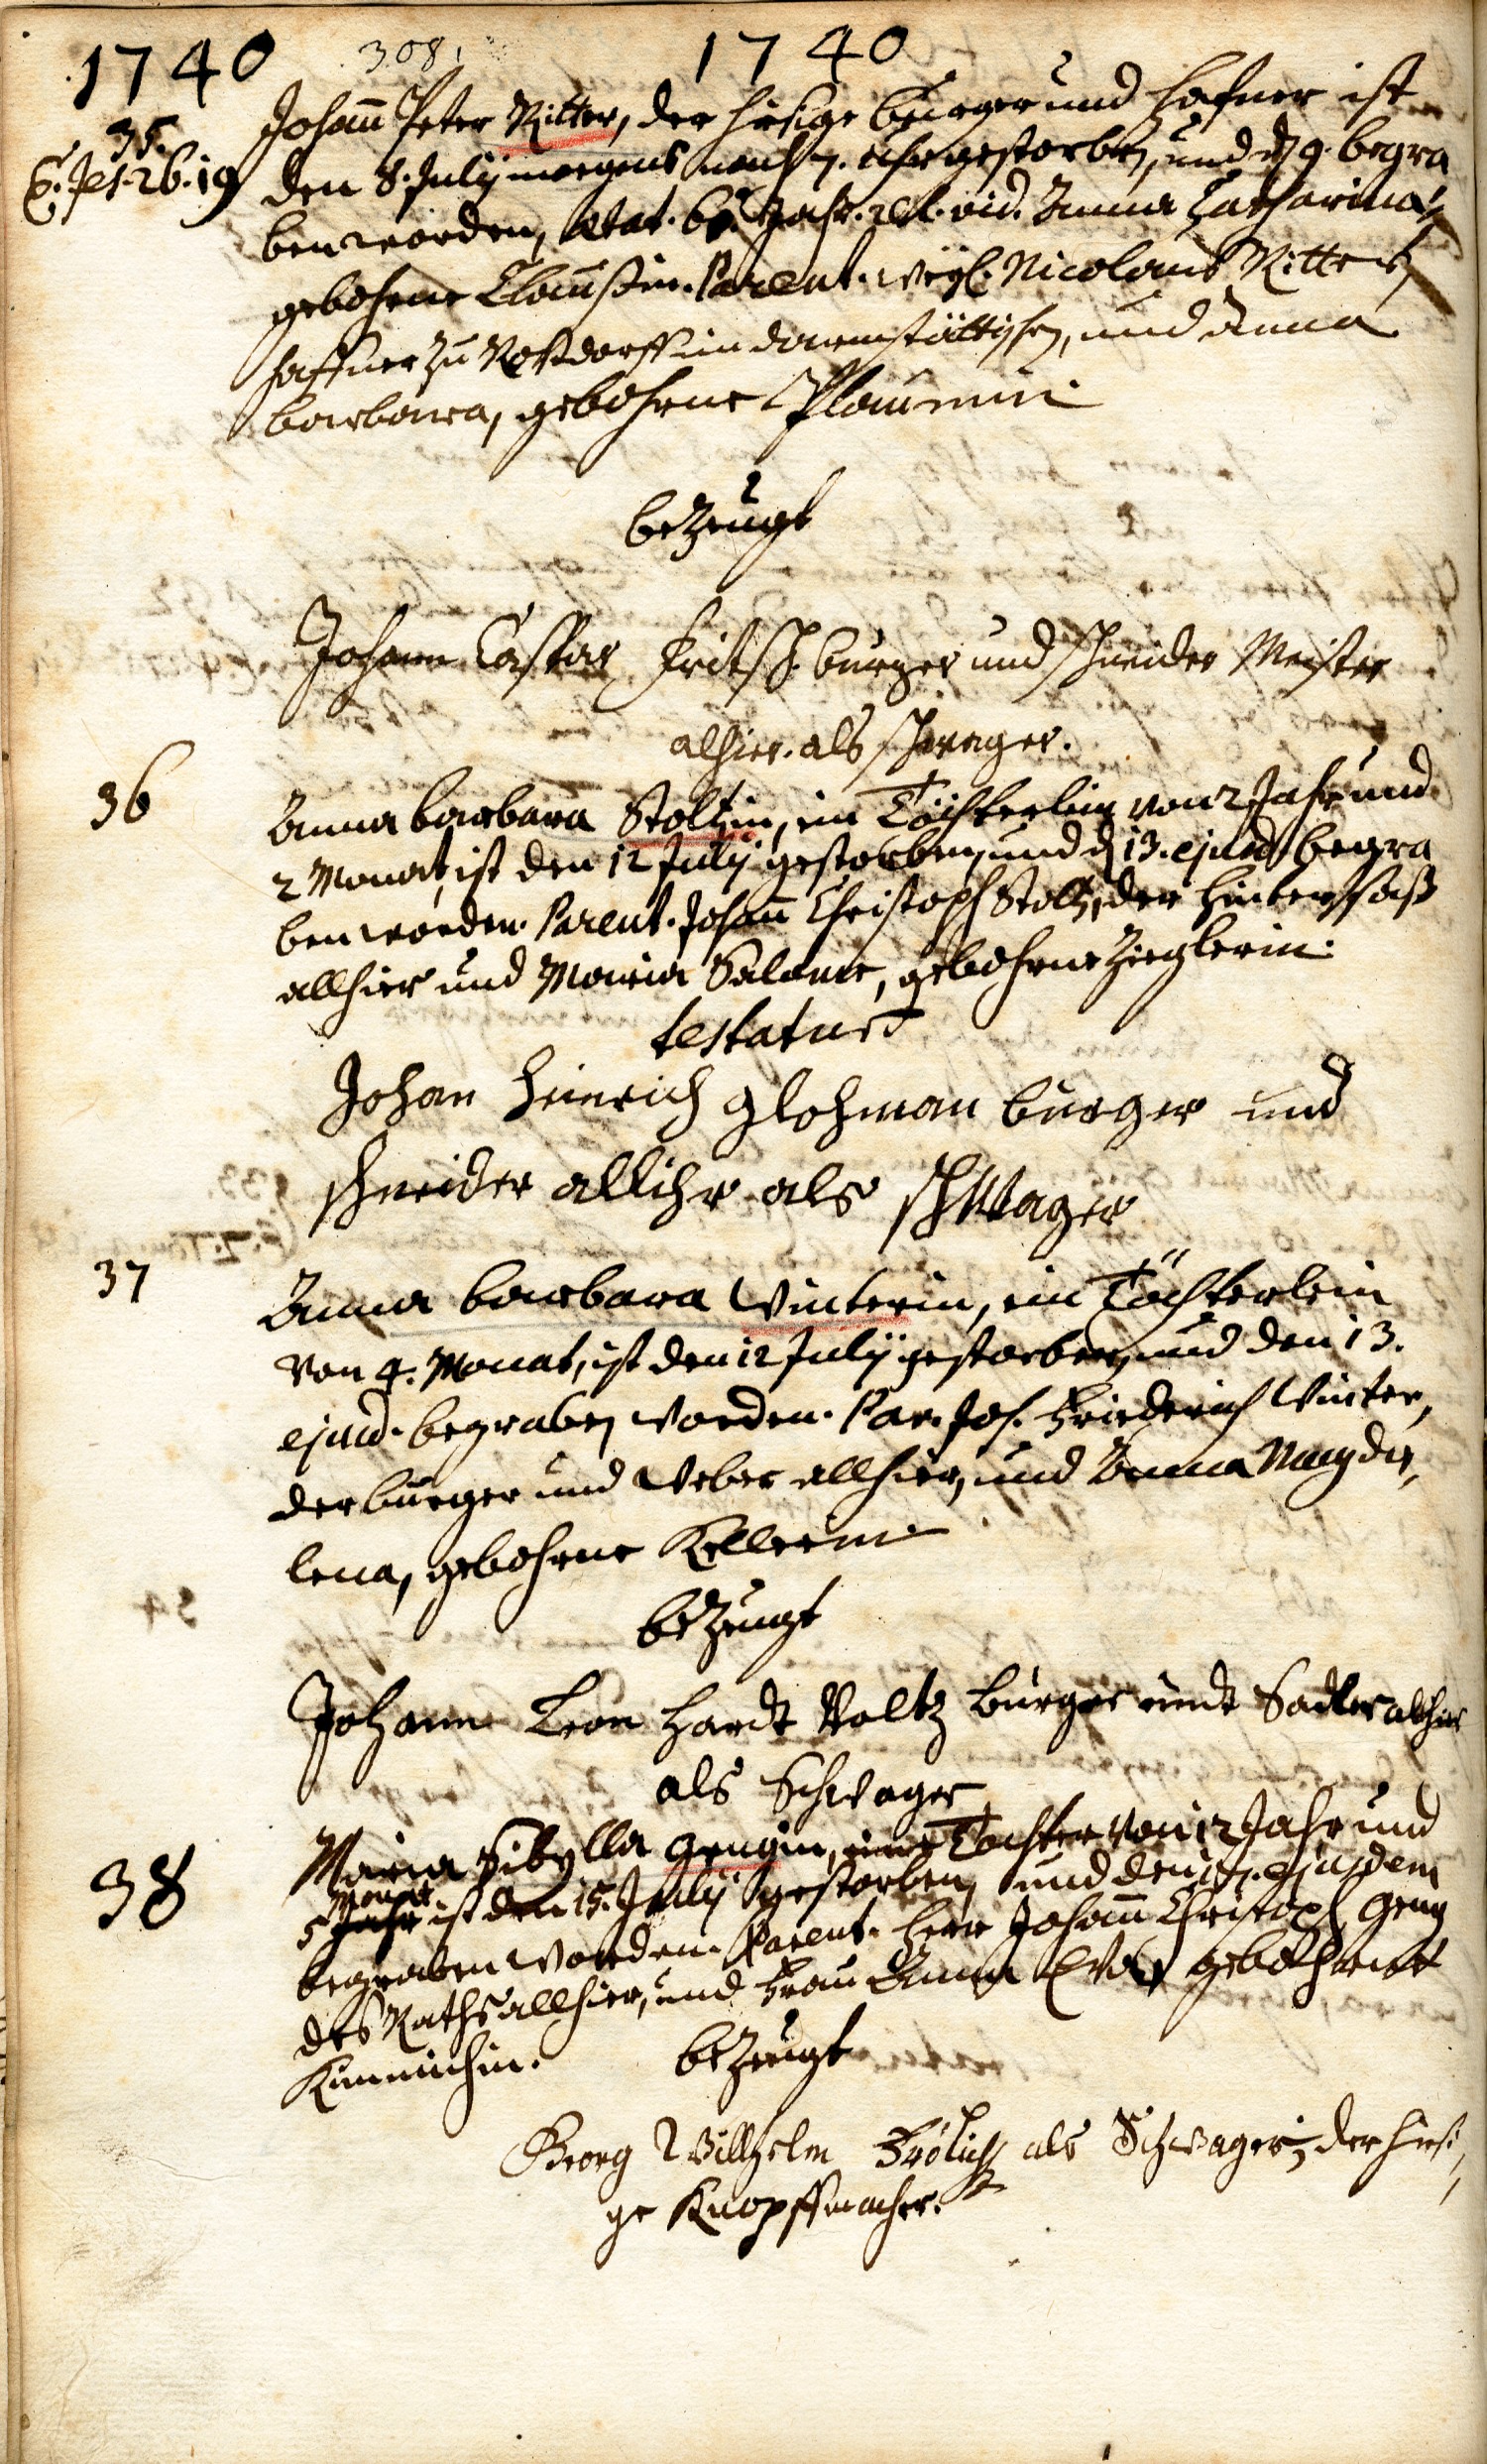 1740 308. 1740
35.
C. Jes. 26. 19
Johann̄ Peter Ritter, der hiesige burger und Hafner ist
den 8. Julÿ morgens nach 7. Uhr gestorben, und d. 9. begra
ben worden, Ætat. Jahr. rel. vid. Anna Catharina
gebohrne Claussin. Parent. weyl. Nicolaus Ritter,
Haffner zu Rossdorff im darmstättischen, und Anna
barbara, gebohrne
bezeugt
Johann Caspar Fritsch burger und schneider Meister
alhier. als schwager.
36
Anna barbara Stoltzin, ein Töchterlein von 2 Jahr und
2 Monat, ist den 12 Julÿ gestorben, und d. 13. ejusd. begra
ben worden. Parent. Johann̄ Christoph Stoltz, der Hintersass
allhier und Maria Salome, gebohrne Zieglerin.
testatur
Johan Heinrich Glohman burger und
schneider allihr als schwager
37
Anna barbara Winterin, ein Töchterlein
von 4. Monat, ist den 12 Julÿ gestorben, und den 13.
ejusd. begraben worden. Par. Joh. Friederich Winter,
der burger und Weber allhier, und Anna Magda,
lena, gebohrne Kellerin.
bezeugt
Johann Leon hardt Voltz burger undt Sadler alhier
als Schwager
38
Maria Sibylla Gengin, eine Tochter von 12 Jahr und
5 Jahr Monat ist den 15. Julÿ gestorben, und den 17. ejusdem
begraben worden. Parent. Herr Johann̄ Christoph Geng
des Raths allhier, und Frau Anna Eva gebohrne
Kimmichin. bezeugt
Georg Willhelm Frölich als Schwager, der hiesi,
ge Knopffmacher.